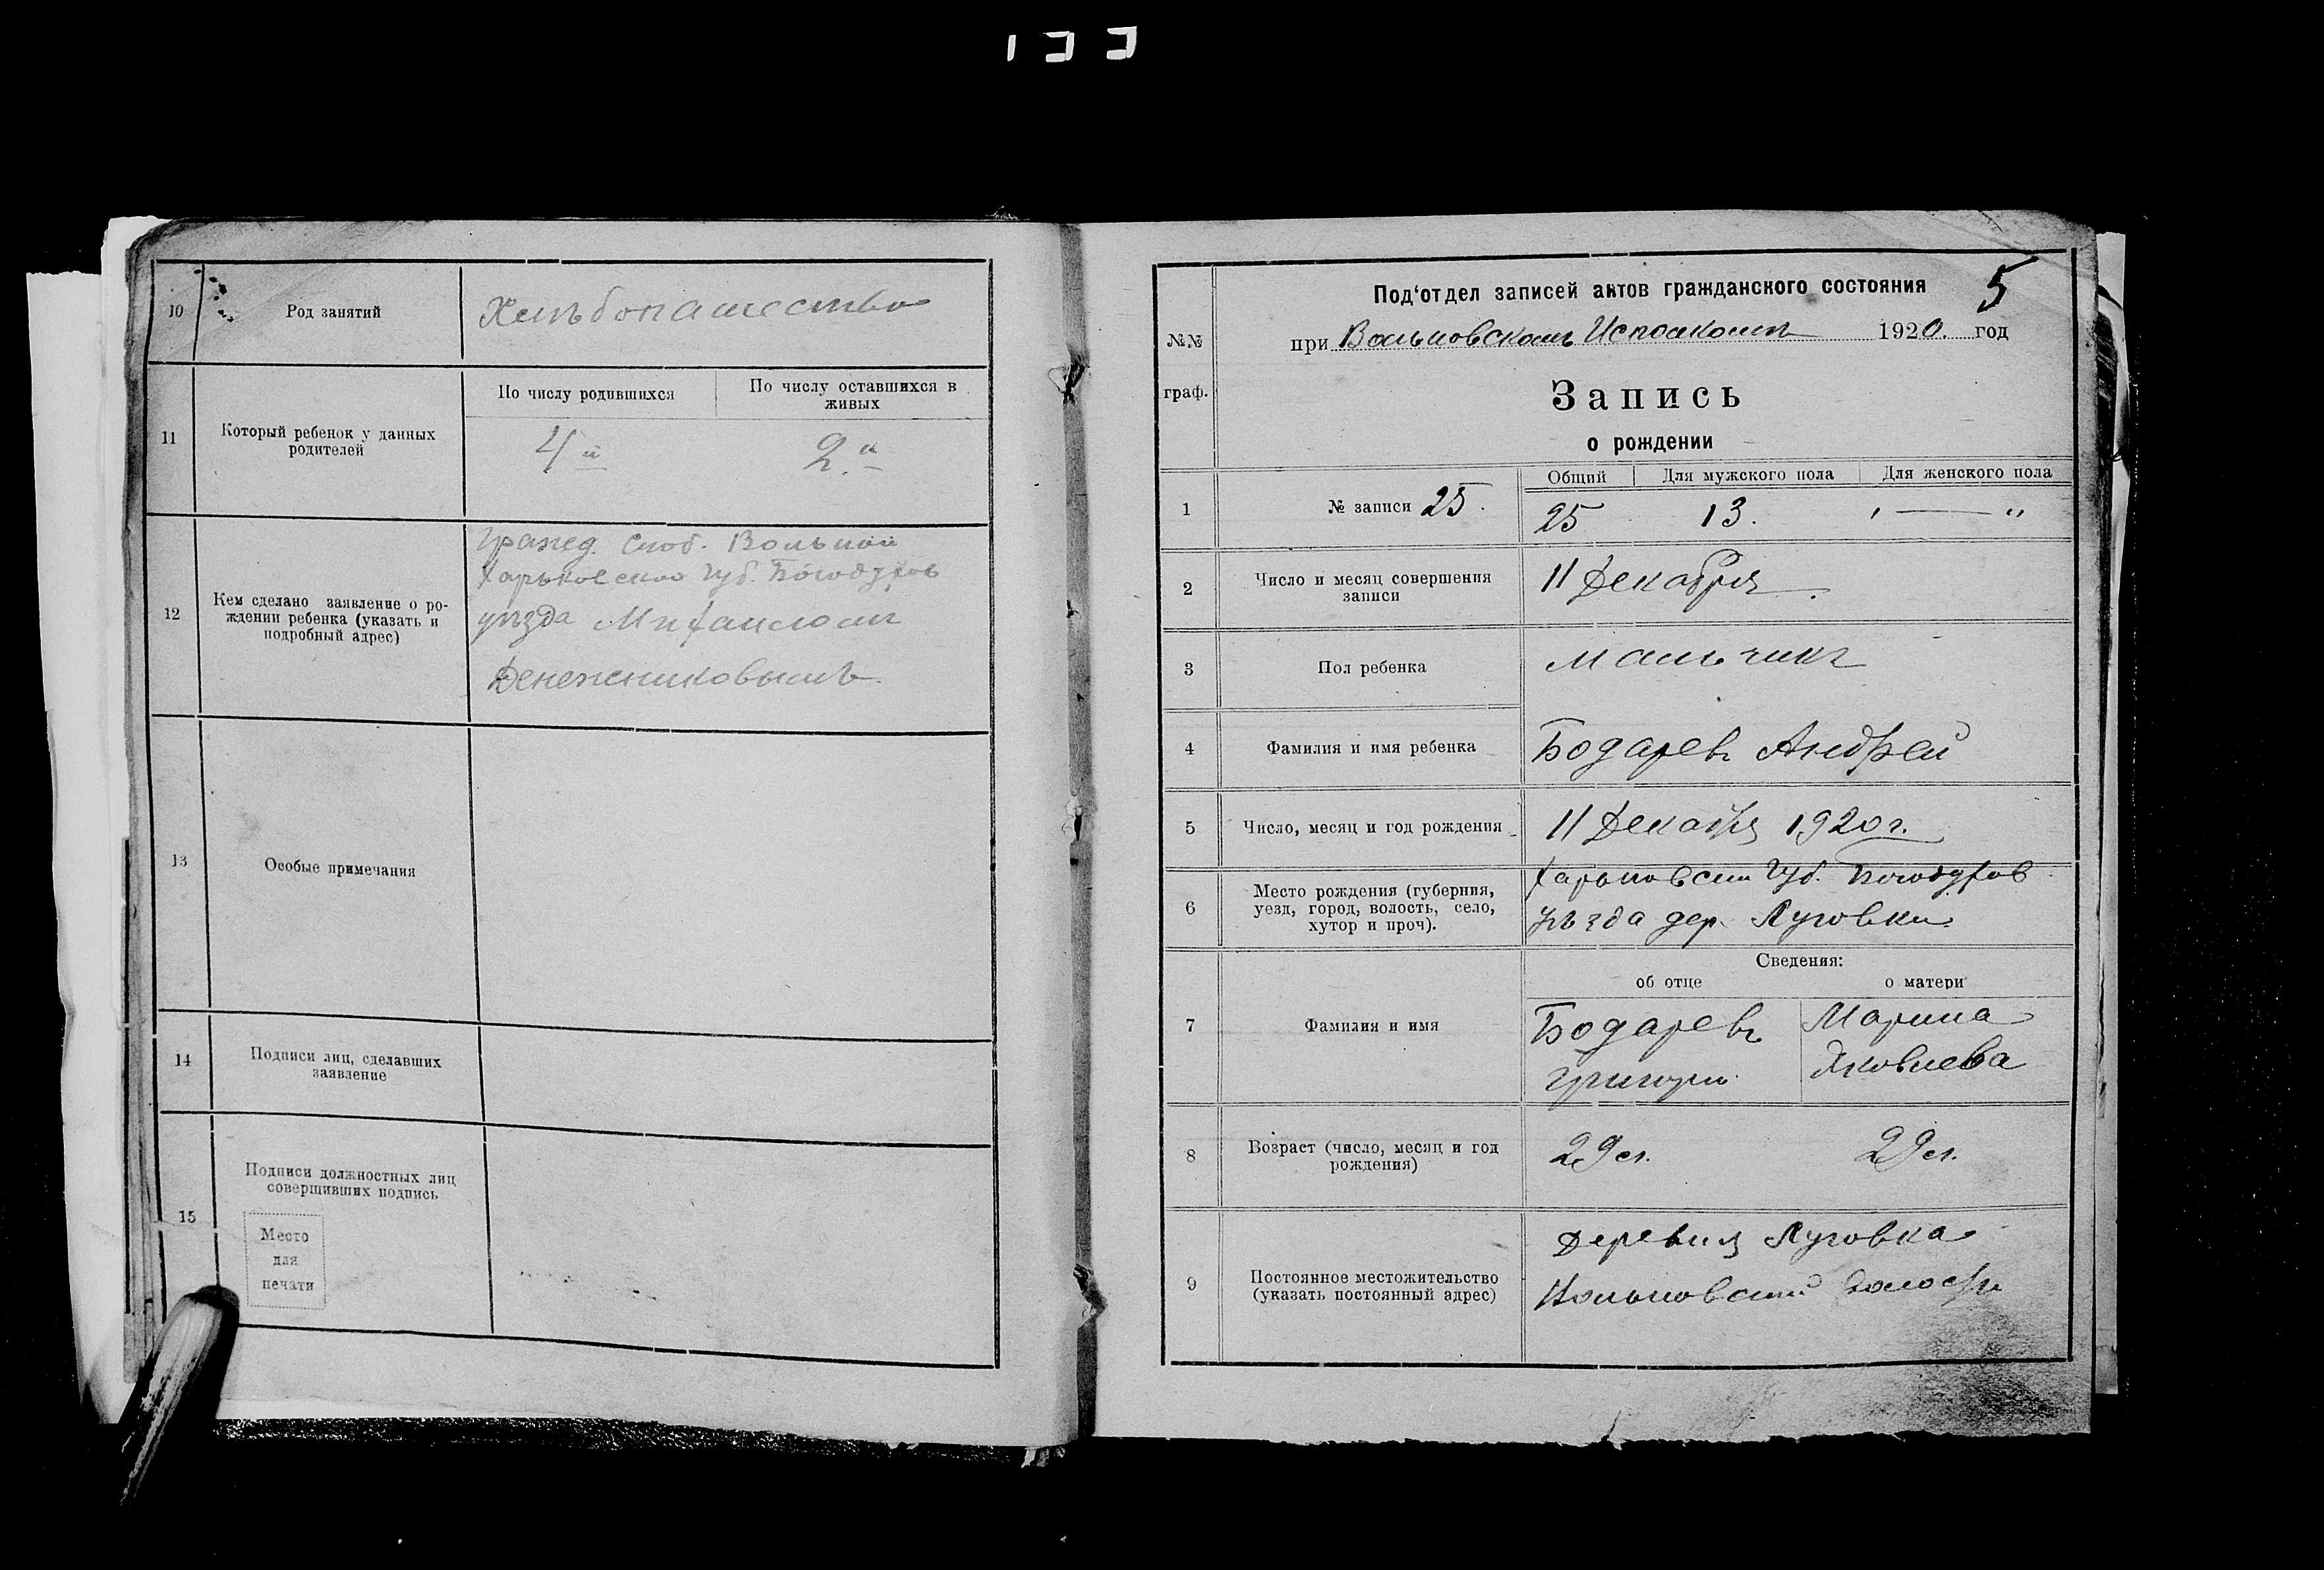 10
Род занятий
Хлѣбопашество
11
Который ребенок у данных
родителей
По числу родившихся
По числу оставшихся в
живых
4й
2й
12
Кем сделано заявление о ро-
ждении ребенка (указать и
подробный адрес)
Гражд. Слоб. Вольной
Харьковской Губ. Богодухов
уѣзда Михаиломъ
Денежниковымъ.
13
Особые примечания
14
Подписи лиц, сделавших
заявление
15
Подписи должностных лиц
совершивших подпись
Место
для
печати
5
№№
граф.
Под‘отдел записей актов гражданского состояния
при Вольновскомъ Исполкомѣ 1920. год
Запись
о рождении
1
№ записи 25.
Общий
Для мужского пола
Для женского пола
25
13.
2
Число и месяц совершения
записи
11 Декабря.
3
Пол ребенка
Мальчикъ
4
Фамилия и имя ребенка
Бодаревъ Андрей
5
Число, месяц и год рождения
11 Декабря 1920 г.
6
Место рождения (губерния,
уезд, город, волость, село,
хутор и проч).
Харьковской Губ. Богодухов
уѣзда дер. Луговки
7
Фамилия и имя
Сведения:
об отце
о матери
Бодаревъ
Григорій
Марина
Яковлева
8
Возраст (число, месяц и год
рождения)
29 л.
29 л.
9
Постоянное местожительство
(указать постоянный адрес)
Деревня Луговка
Вольновской волости